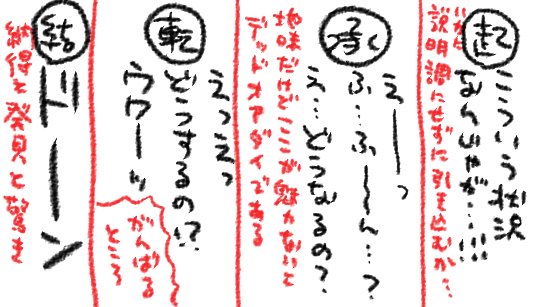 起
こういう状況
なんじゃが…!!!
いかに
説明調にせずに引き込むか…
承
えーーっ
ふ…ふーーん…?
え…どうなるの?
地味だけどここが魅力ないと
デッドオアダイである
転
えっえっ
どうするの!?
ウワーーッ
がんばる
ところ
結
ドーーン
納得と発見と驚き